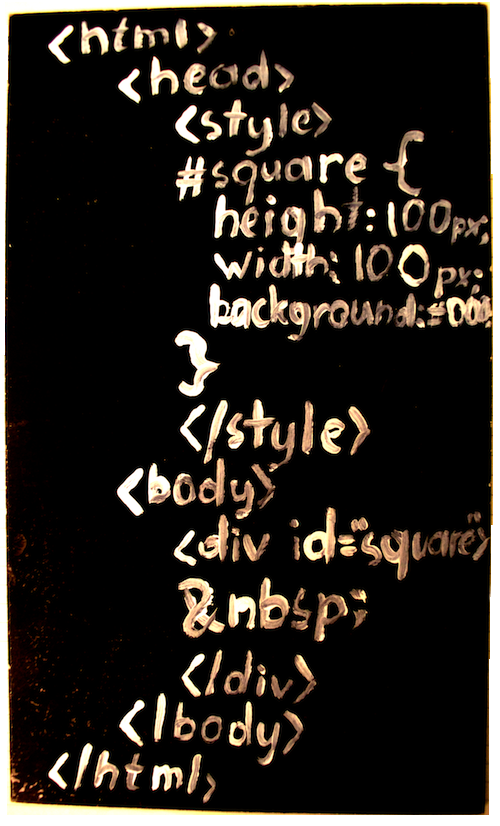 <html>
<head>
<style>
#square {
height: 100px;
width: 100px;
background: #000;
}
</style>
<body>
<div id="square">
&nbsp;
</div>
</body>
</html>